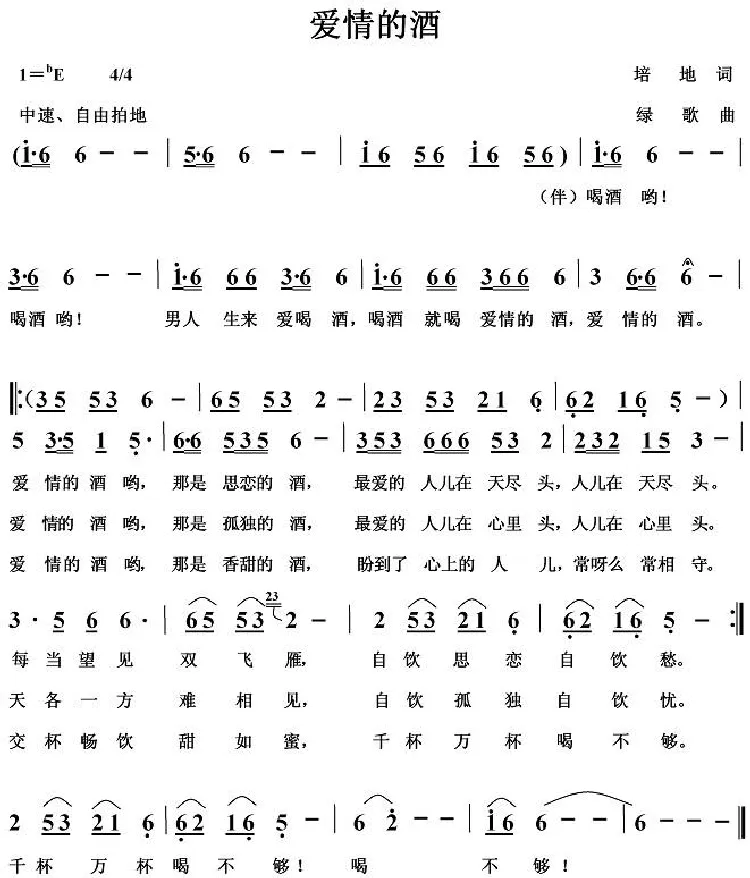 爱情的酒
1=ᵇE 4/4 培 地 词
中速、自由拍地 绿 歌 曲
(i·6 6 - - | 5·6 6 - - | i6 56 i6 56) | i·6 6 - - |
（伴）喝酒 哟！
3·6 6 - - | i·6 66 3·6 6 | i·6 66 366 6 | 3 6·6 6 - |
喝酒 哟！ 男人 生来 爱喝 酒，喝酒 就喝 爱情的 酒，爱 情的 酒。
‖:(35 53 6 - | 65 53 2 - | 23 53 21 6 | 62 16 5 - ) |
5 3·5 1 5· | 6·6 535 6 - | 353 666 53 2 | 232 15 3 - |
爱 情的 酒 哟， 那是 思恋的 酒， 最爱的 人儿在 天尽 头，人儿在 天尽 头。
爱 情的 酒 哟， 那是 孤独的 酒， 最爱的 人儿在 心里 头，人儿在 心里 头。
爱 情的 酒 哟， 那是 香甜的 酒， 盼到了 心上的 人 儿，常呀么 常相 守。
3· 5 6 6· | 65 53 23 2 - | 2 53 21 6 | 62 16 5 - :‖
每 当 望 见 双 飞 雁， 自 饮 思 恋 自 饮 愁。
天 各 一 方 难 相 见， 自 饮 孤 独 自 饮 忧。
交 杯 畅 饮 甜 如 蜜， 千 杯 万 杯 喝 不 够。
2 53 21 6 | 62 16 5 - | 6 2 - - | i6 6 - - | 6 - - - ‖
千 杯 万 杯 喝 不 够！ 喝 不 够！